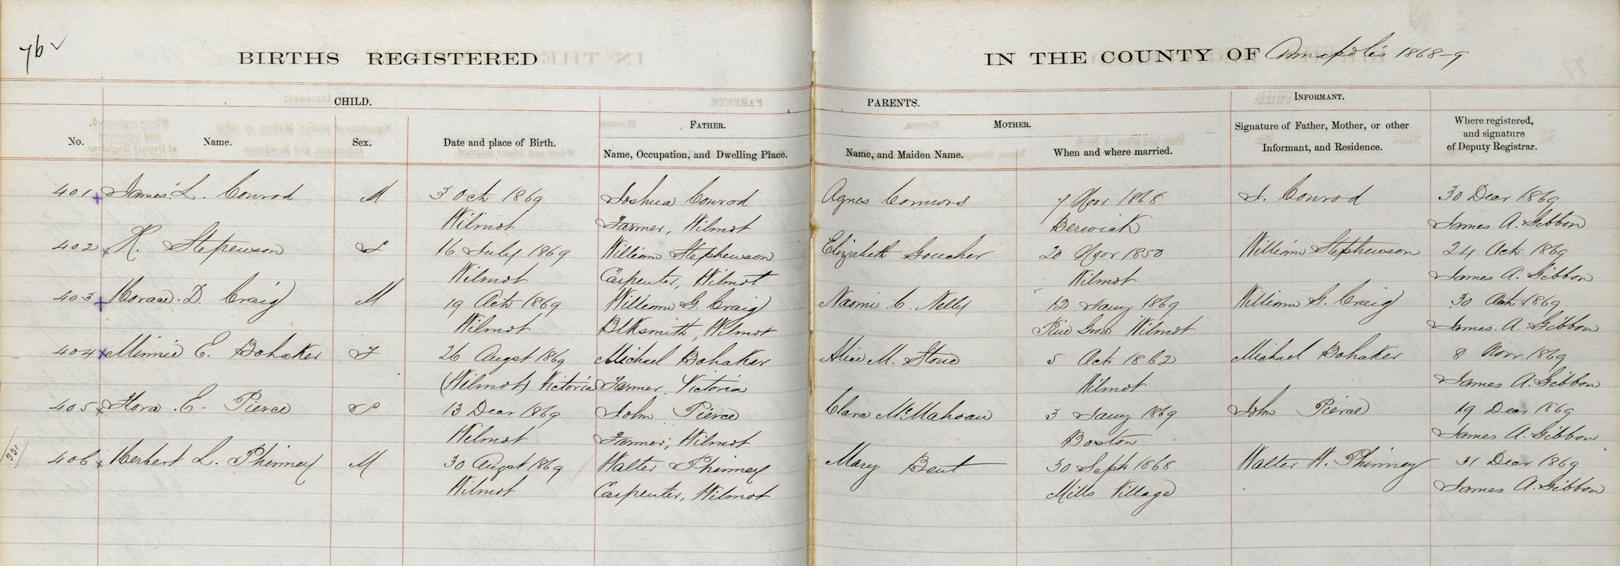 76 ✓
BIRTHS REGISTERED IN THE COUNTY OF Annapolis 1868-9
CHILD. PARENTS. INFORMANT.
FATHER. MOTHER.
No. Name. Sex. Date and place of Birth. Name, Occupation, and Dwelling Place. Name, and Maiden Name. When and where married. Signature of Father, Mother, or other Informant, and Residence. Where registered, and signature of Deputy Registrar.
401 James L. Conrod M 3 Oct 1869 Joshua Conrod Agnes Connors 7 Nov 1868 J. Conrod 30 Decr 1869
Wilmot Farmer, Wilmot Berwick James A. Gibbon
402 H. Stepenson F 16 July 1869 William Stephenson Elizabeth Goucher 20 Novr 1850 William Stephenson 24 Oct 1869
Wilmot Carpenter, Wilmot Wilmot James A. Gibbon
403 Horace D. Craig M 19 Oct 1869 William G. Craig Naomi C. Nelly 12 Jany 1869 William G. Craig 30 Oct 1869
Wilmot Blksmith, Wilmot Wilmot James A. Gibbon
404 Minnie E. Bohaker F 26 Augst 1869 Michael Bohaker Alice M. Stone 5 Oct 1862 Michael Bohaker 8 Novr 1869
(Wilmot) Victoria Farmer, Victoria Wilmot James A. Gibbon
405 Flora E. Pierce F 13 Decr 1869 John Pierce Clara McMahoan 3 Jany 1869 John Pierce 19 Decr 1869
Wilmot Farmer, Wilmot Boston James A. Gibbon
406 Herbert L. Phinney M 30 Augst 1869 Walter Phinney Mary Bent 30 Sept 1868 Walter W. Phinney 31 Decr 1869
Wilmot Carpenter, Wilmot Mills Village James A. Gibbon